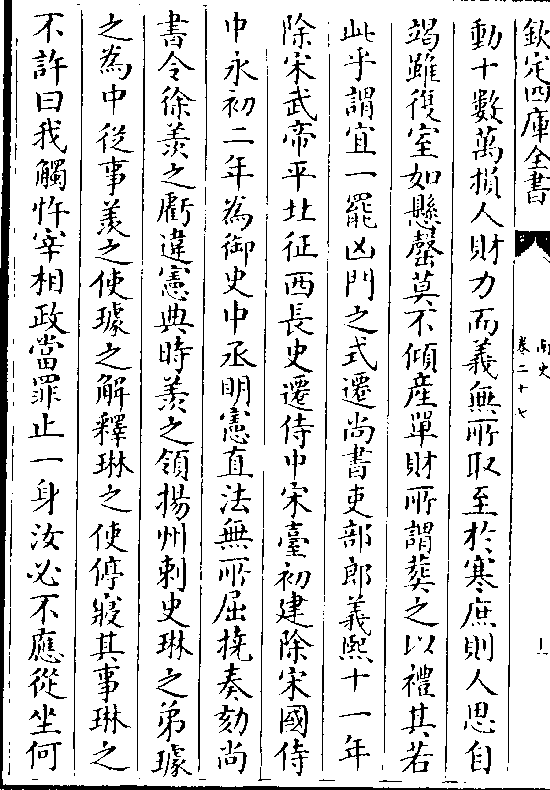 欽定四庫全書
南史
卷二十七
動十數萬損人財力而義無所取至於寒庶則人思自
竭雖復室如懸罄莫不傾産單財所謂葬之以禮其若
此乎謂宜一罷凶門之式遷尚書吏部郎義熙十一年
除宋武帝平北征西長史遷侍中宋臺初建除宋國侍
中永初二年為御史中丞明憲直法無所屈撓奏劾尚
書令徐羨之虧違憲典時羨之領揚州刺史琳之弟璩
之為中從事羨之使璩之解釋琳之使停寢其事琳之
不許曰我觸忤宰相政當罪止一身汝必不應從坐何